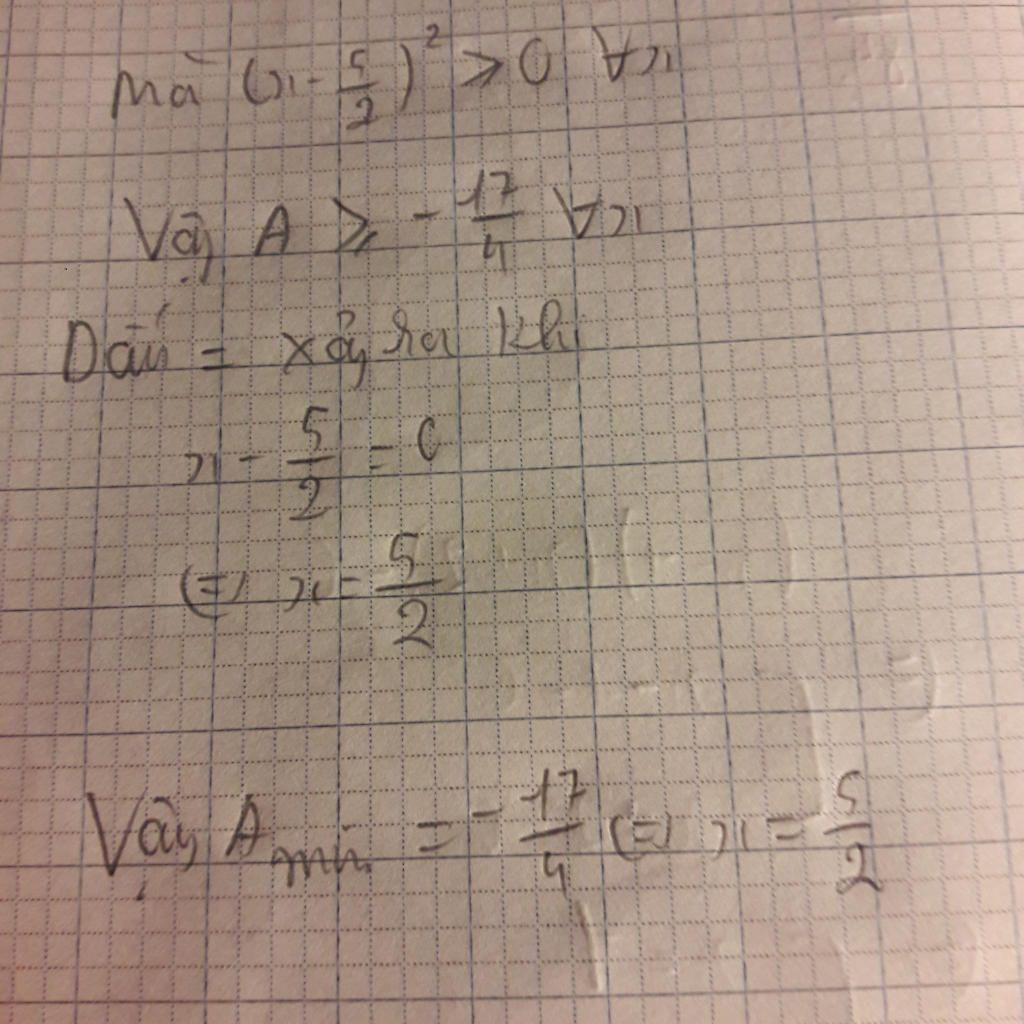 mà (x - 5/2)² ≥ 0 ∀x
Vậy A ≥ - 17/4 ∀x
Dấu = xảy ra khi
x - 5/2 = 0
(=) x = 5/2
Vậy A min = - 17/4 (=) x = 5/2